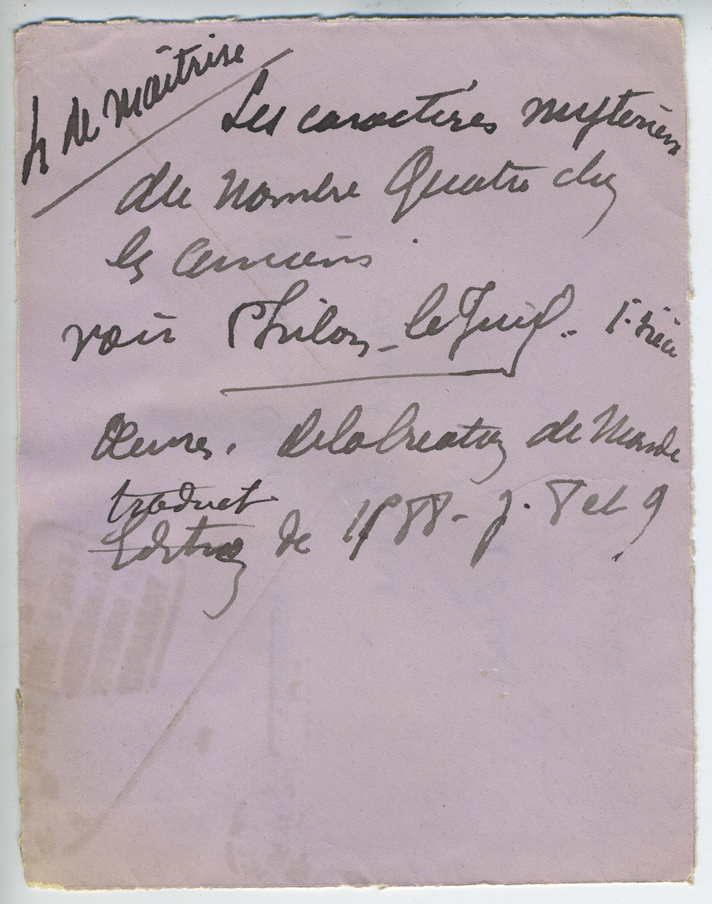 4 de maîtrise
Les caractères mystérieux
du Nombre Quatre chez
les anciens.
voir Philon-le Juif. 1er siècle
Oeuvres. De la Creation du Monde
traduct
Edition de 1588 - p. 8 et 9